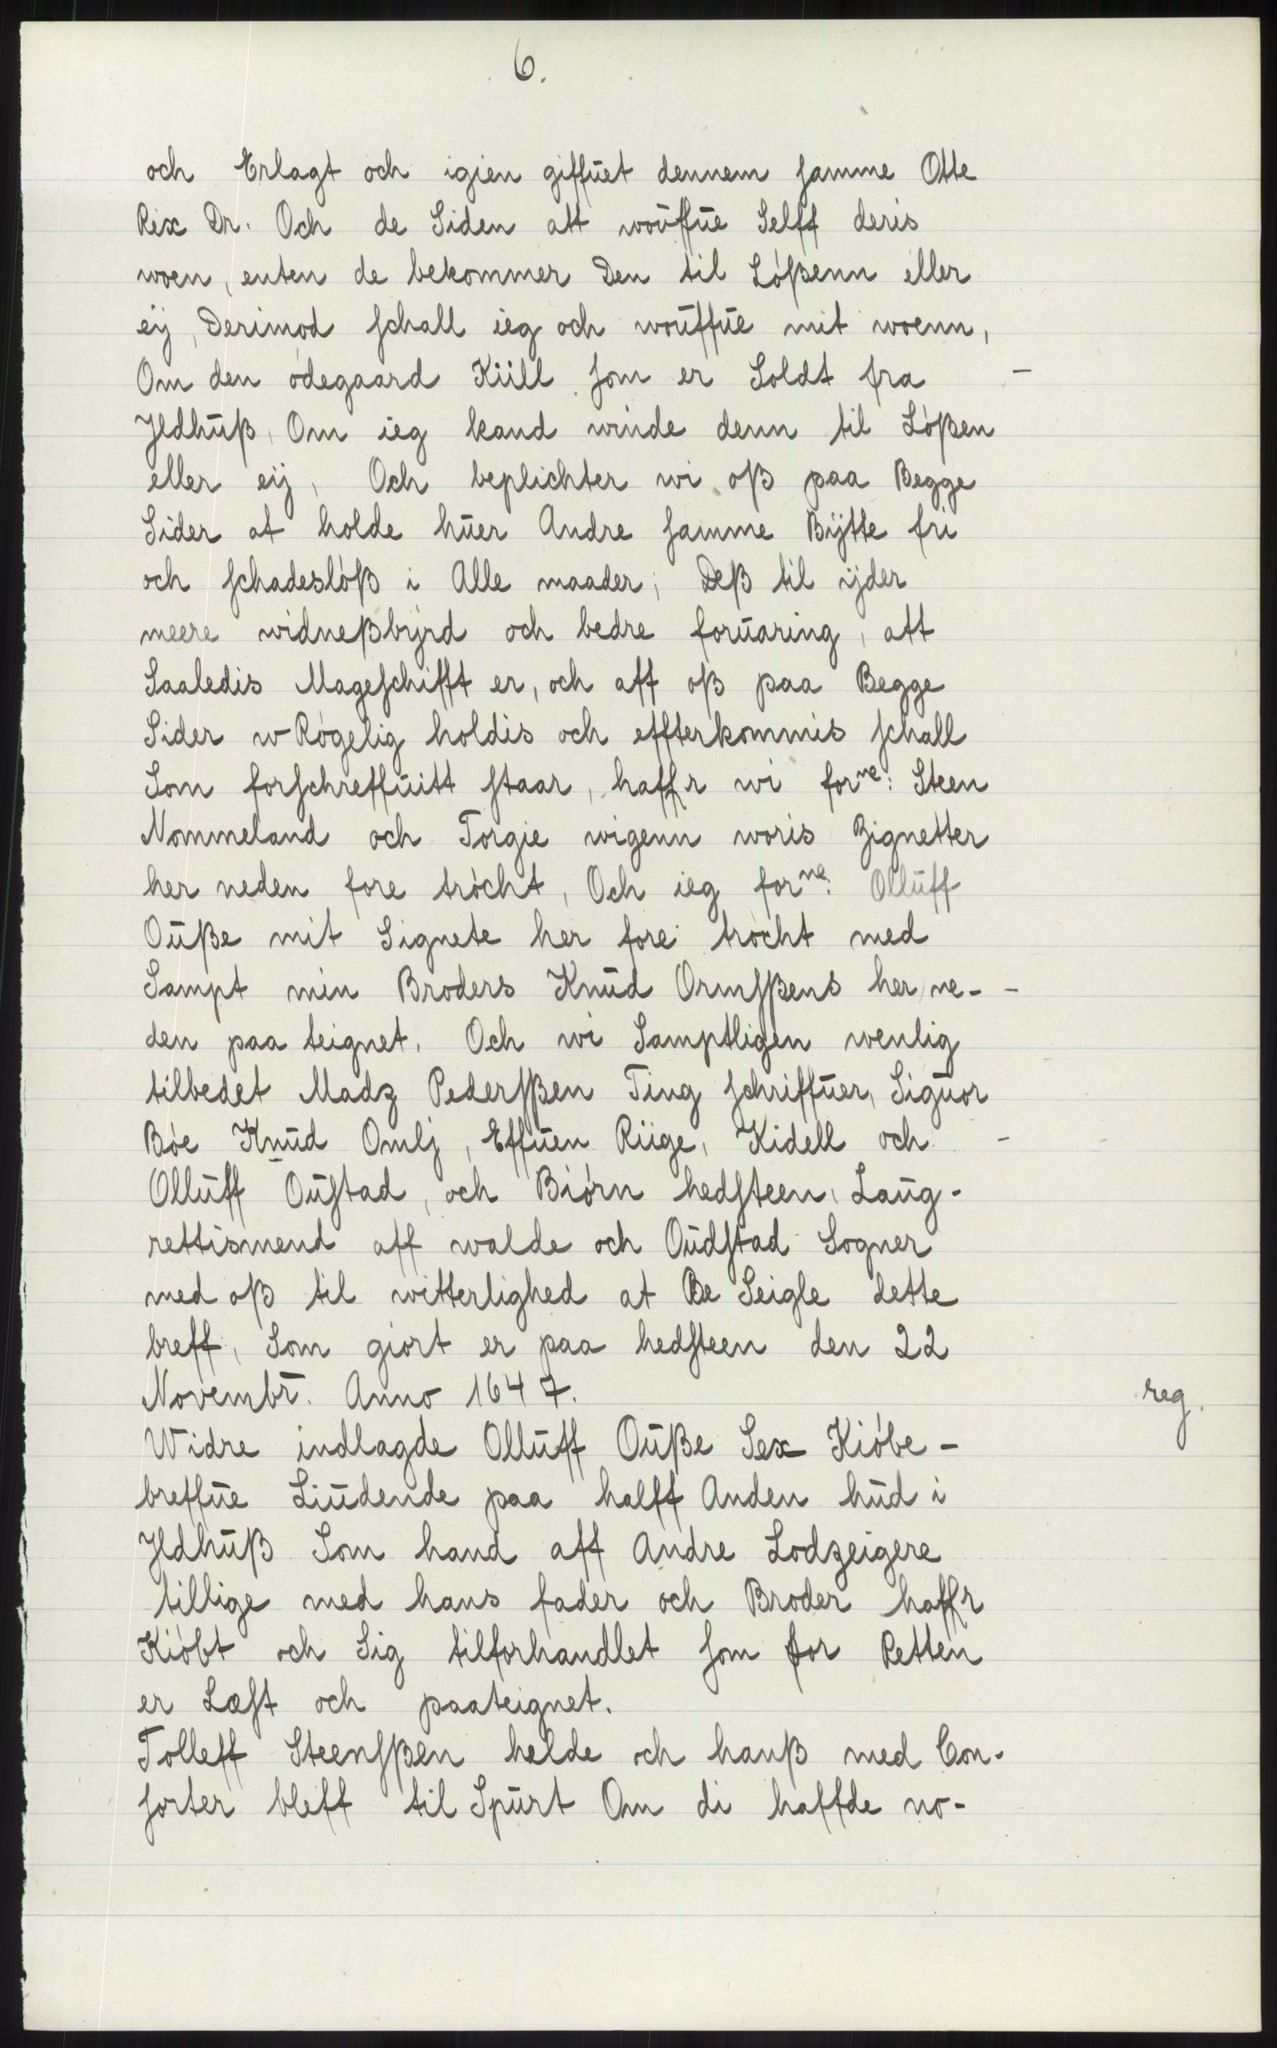 6.
och Erlagt och igien giffuet dennem samme Otte
Rix Dr. Och de Siden att wouffue Selff deris
woen, enten de bekommer Den til Lößenn eller
eÿ, Derimod schall ieg och wouffue mit woenn,
Om den ödegaard Kiill som er Soldt fra —
Jldhuß, Om ieg kand winde denn til Lößen
eller eij, Och beplichter wi oß paa Begge
Sider at holde huer Andre samme Bÿtte fri
och schadeslöß i Alle maader, Deß til ijder
meere widneßbÿrd och bedre foruaring, att
Saaledis Mageschifft er, och aff oß paa Begge
Sider w-Rögelig holdis och effterkommis schall
Som forschreffuitt staar, haffr wi forne: Steen
Nommeland och Torgie wigenn woris Zignetter
her neden fore tröcht, Och ieg forne: Olluff
Oußе mit Signete her fore tröcht med
Sampt min Broders Knud Ormsßens her ne- -
den paa teignet. Och wi Samptligen wenlig
tilbedet Madz Pedersßen Ting schriffuer, Siguor
Böe Knud Omlj, Effuen Riige, Kidell och —
Olluff Oustad, och Biörn hedsteen, Laug-
rettismend aff walde och Oudstad Sogner
med oß til witterlighed at Be Seigle dette
breff, Som giort er paa hedsteen den 22
Novembr. Anno 1647.
reg.
Widre indlagde Olluff Ouße Sex Kiöbe-
breffue Liudende paa halff Anden hud i
Jldhuß Som hand aff Andre Lodzeigere
tillige med hans fader och Broder haffr
Kiöbt och Sig tilforhandlet som for Retten
er Læst och paateignet.
Tolleff Steensßen helde och hanß med Con-
sorter bleff til Spurt Om di haffde no-